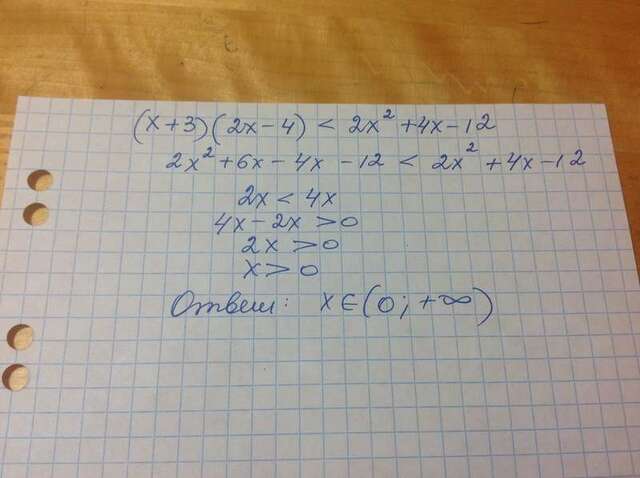 (x+3)(2x-4) < 2x²+4x-12
2x²+6x-4x-12 < 2x²+4x-12
2x < 4x
4x-2x >0
2x >0
x > 0
Ответ: x∈(0; +∞)